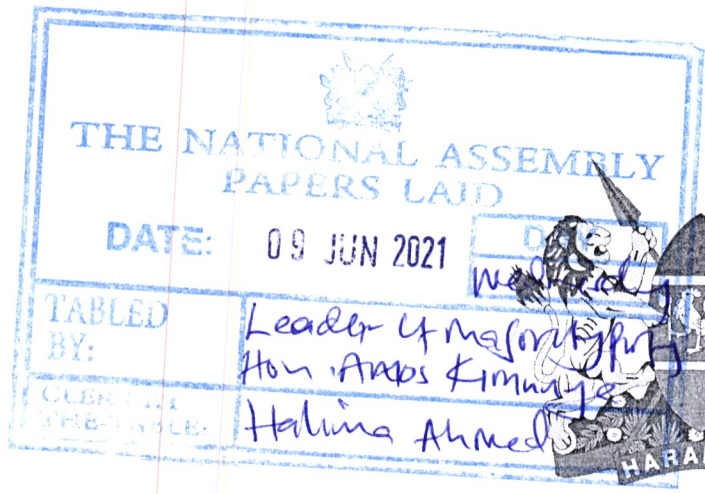 THE NATIONAL ASSEMBLY
PAPERS LAID
DATE: 09 JUN 2021
Wednesday
TABLED BY: Leader of Majority Party
Hon. Amos Kimunya
CLERK AT THE TABLE: Halima Ahmed
HARA